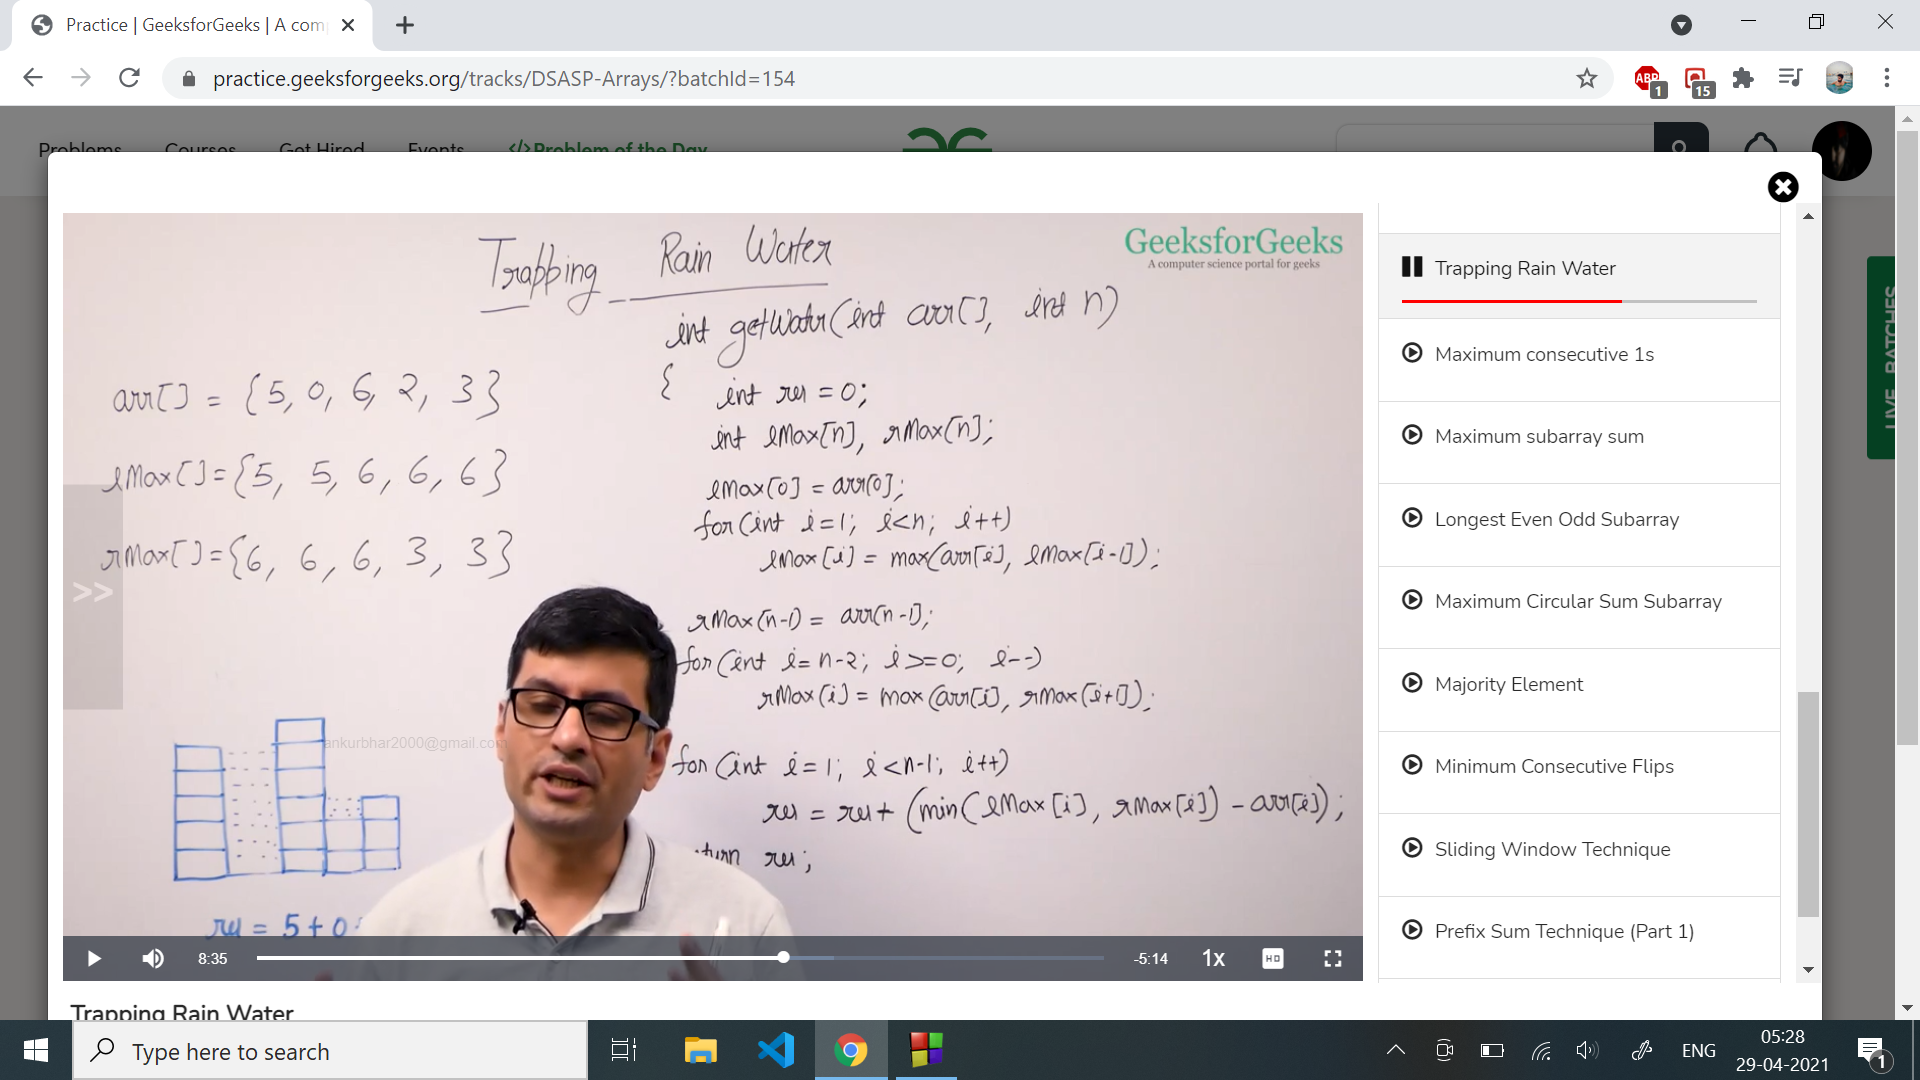 Practice | GeeksforGeeks | A com
practice.geeksforgeeks.org/tracks/DSASP-Arrays/?batchId=154
ABP
1
15
Problems Courses Get Hired Events </> Problem of the Day
Trapping Rain Water
GeeksforGeeks
A computer science portal for geeks
int getWater(int arr[], int n)
{
int res = 0;
int lMax[n], rMax[n];
lMax[0] = arr[0];
for(int i=1; i<n; i++)
lMax[i] = max(arr[i], lMax[i-1]);
rMax[n-1] = arr[n-1];
for(int i=n-2; i>=0; i--)
rMax[i] = max(arr[i], rMax[i+1]);
for(int i=1; i<n-1; i++)
res = res + (min(lMax[i], rMax[i]) - arr[i]);
turn res;
arr[] = {5, 0, 6, 2, 3}
lMax[] = {5, 5, 6, 6, 6}
rMax[] = {6, 6, 6, 3, 3}
>>
ankurbhar2000@gmail.com
res = 5 + 0
8:35
-5:14
1x
HD
Trapping Rain Water
Trapping Rain Water
Maximum consecutive 1s
Maximum subarray sum
Longest Even Odd Subarray
Maximum Circular Sum Subarray
Majority Element
Minimum Consecutive Flips
Sliding Window Technique
Prefix Sum Technique (Part 1)
LIVE BATCHES
Type here to search
ENG
05:28
29-04-2021
1